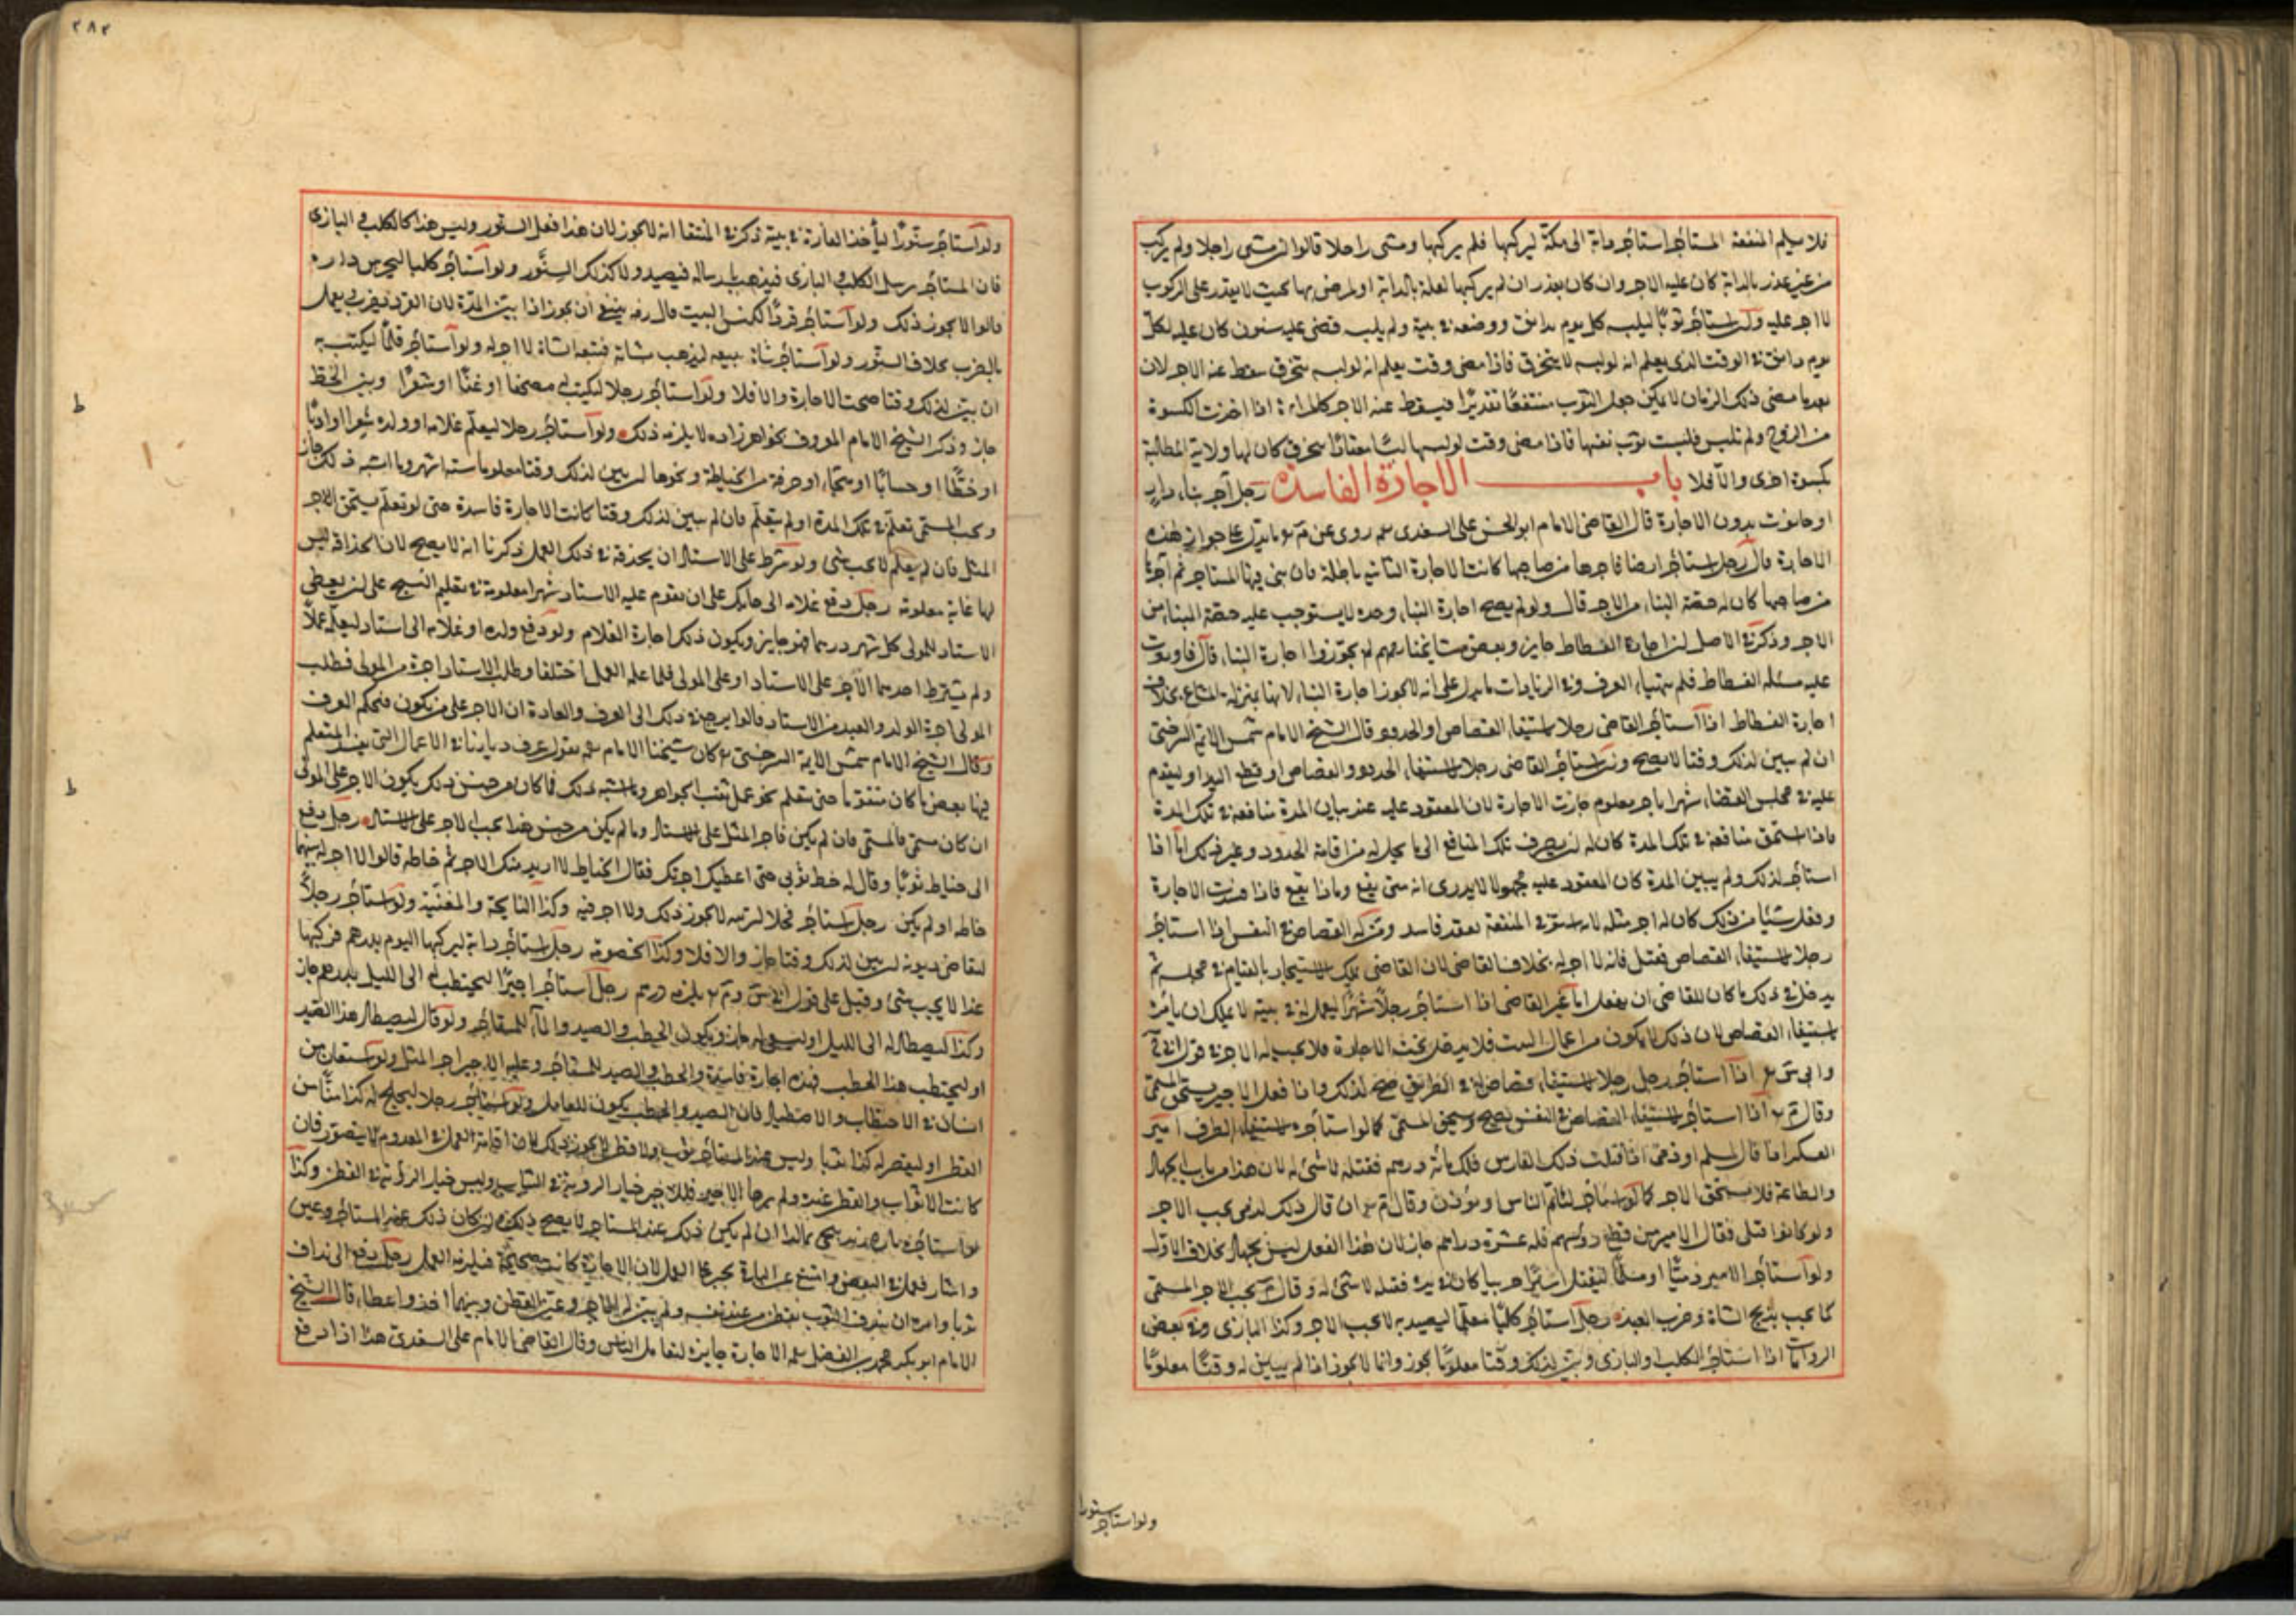 فلا يسلم المنفعة المستأجر استأجر دابة الى مكة ليركبها فلم يركبها ومشى راجلا قالوا ان مشى راجلا ولم يركب
من غير عذر بالدابة كان عليه الاجر وان كان بعذر ان لم يركبها لعلة بالدابة او لمرض بها بحيث لا يقدر على الركوب
لا اجر عليه ولو استأجر ثوبا ليلبسه كل يوم بدانق ووضعه في بيته ولم يلبسه فمضى عليه سنون كان عليه لكل
يوم دانق في الوقت الذي يعلم انه لو لبسه لا يتخرق فاذا مضى وقت يعلم انه لو لبسه تخرق سقط عنه الاجر لان
بعد ما مضى ذلك الزمان لا يمكن جعل الثوب منتفعا تقديرا فيسقط عنه الاجر كالمراة اذا اخذت الكسوة
من الزوج ولم تلبس فلبست ثوب نفسها فاذا مضى وقت لو لبسها لبسا معتادا يتخرق كان لها ولاية المطالبة
بكسوة اخرى والا فلا باب الاجارة الفاسده رجل آجر بناء دار
او حانوت بدون الاجارة قال القاضي الامام ابو الحسن علي السغدي روى عن م ما يدل على جواز هذه
الاجارة قال رجل استأجر ارضا فاجرها من صاحبها كانت الاجارة الثانية باطلة فان بنى فيها المستاجر ثم آجرها
من صاحبها كان له حصة البناء من الاجر قال ولو لم يصح اجارة البناء وحده لا يستوجب عليه حصة البناء من
الاجر وذكر في الاصل ان اجارة الفسطاط جايز وبعض مشايخنا لم يجوزوا اجارة البناء
عليه مسئلة الفسطاط فلم يتهيا العرف وفي الزيادات ما يدل على انه لا يجوز اجارة البناء لانها بمنزلة المشاع بخلاف
اجارة الفسطاط اذا استأجر القاضي رجلا لاستيفاء القصاص او الحدود قال الشيخ الامام شمس الائمة السرخسي
ان لم يبين لذلك وقتا لا يصح ولو استأجر القاضي رجلا لاستيفاء الحدود والقصاص او قطع اليد او ليقوم
عليه في مجلس القضاء شهرا باجر معلوم جازت الاجارة لان المعقود عليه عند بيان المدة منافعه في تلك المدة
فاذا استحق منافعه في تلك المدة كان له ان يصرف تلك المنافع الى ما يحل له من اقامة الحدود وغير ذلك اما اذا
استأجر لذلك ولم يبين المدة كان المعقود عليه مجهولا لا يدرى انه متى يقع وماذا يقع فاذا فسدت الاجارة
وفعل شيئا من ذلك كان له اجر مثله لانه استوفى المنفعة بعقد فاسد وفي القصاص في النفس اذا استأجر
رجلا لاستيفاء القصاص فقتل فانه لا اجر له بخلاف القاضي لان القاضي يملك الاستيجار بالقيام في مجلسه ثم
يدخل في ذلك ما كان للقاضي ان يفعل اما غير القاضي اذا استأجر رجلا شهرا ليعمل له في بيته لا يملك ان يامره
باستيفاء القصاص لان ذلك لا يكون من اعمال البيت فلا يدخل تحت الاجارة فلا يجب له الاجر في قول
اذا استأجر رجل رجلا لاستيفاء قصاص له في الطريق صح لذلك واذا فعل الاجير يستحق المسمى
وقال م اذا استأجر لاستيفاء القصاص في النفس يصح ويستحق المسمى كما لو استأجره لاستيفاء الطرف امير
العسكر اذا قال لمسلم او ذمي اذا قتلت ذلك الفارس فلك مائة درهم فقتله لا شئ له لان هذا من باب الجهاد
والطاعة فلا يستحق الاجر كما لو استأجر ليؤم الناس او يؤذن وقال م ان قال ذلك لذمي يجب الاجر
ولو كانوا قتلى فقال الامير من قطع رؤسهم فله عشرة دراهم جاز لان هذا الفعل ليس بجهاد بخلاف الاول
ولو استأجر الامير ذميا او مسلما ليقتل اسيرا حربيا كان في يده فقتله لا شئ له وقال م يجب الاجر المسمى
كما يجب بذبح الشاة وضرب العبد رجل استأجر كلبا معلما ليصيد به لا يجب الاجر وكذا البازي وفي بعض
الروايات اذا استأجر الكلب والبازي وبين لذلك وقتا معلوما يجوز وانما لا يجوز اذا لم يبين له وقتا معلوما
ولو استاجر سنورا
٢٨٢
ولو استأجر سنورا ليأخذ الفارة في بيته ذكر في المنتقا انه لا يجوز لان هذا فعل السنور وليس هذا كالكلب والبازي
فان المستأجر يرسل الكلب والبازي فيذهب بارساله فيصيد ولا كذلك السنور ولو استأجر كلبا ليحرس داره
قالوا لا يجوز ذلك ولو استأجر قردا لكنس البيت قال رضه ينبغي ان يجوز اذا بين المدة لان القرد يضرب يعمل
بالضرب بخلاف السنور ولو استأجر شاة تبيعه ليذهب بشاته فتتبعه الشاة لا اجر له ولو استأجر قلما ليكتب به
ان بين لذلك وقتا صحت الاجارة والا فلا ولو استأجر رجلا ليكتب له مصحفا او غناء او شعرا وبين الخط
جاز وذكر الشيخ الامام المعروف بخواهرزاده لا يلزمه ذلك ولو استأجر رجلا ليعلم غلامه او ولده شعرا او ادبا
او خطا او حسابا او هجاء او حرفة من الخياطة ونحوها ان بين لذلك وقتا معلوما ستة اشهر وما اشبه ذلك جاز
ويجب المسمى تعلم في تلك المدة او لم يتعلم فان لم يبين لذلك وقتا كانت الاجارة فاسدة حتى لو تعلم يستحق اجر
المثل فان لم يتعلم لا يجب شئ ولو شرط على الاستاد ان يحذقه في ذلك العمل ذكرنا انه لا يصح لان الحذاقة ليس
لها غاية معلومة رجل دفع غلامه الى حايك على ان يقوم عليه الاستاد شهرا معلومة في تعليم النسج على ان يعطي
الاستاد المولى كل شهر درهما فهو جايز ويكون ذلك اجارة الغلام ولو دفع ولده او غلامه الى استاد ليعلمه عملا
ولم يشترط احدهما الاجر على الاستاد او على المولى فلما علمه العمل اختلفا وطلب الاستاد اجرة من المولى وطلب
المولى اجرة الولد والعبد من الاستاد قالوا يرجع في ذلك الى العرف والعادة ان الاجر على من يكون فيحكم العرف
وقال الشيخ الامام شمس الائمة السرخسي كان شيخنا الامام يقول عرف ديارنا في الاعمال التي يفسد المتعلم
فيها بعض ما كان متقوما حتى يتعلم نحو عمل ثقب الجواهر وما اشبه ذلك فما كان من جنس ذلك يكون الاجر على المولى
ان كان مسمى فالمسمى فان لم يكن فاجر المثل على الاستاد وما لم يكن من جنس هذا يجب الاجر على الاستاد رجل دفع
الى خياط ثوبا وقال له خط ثوبي حتى اعطيك اجرتك فقال الخياط لا اريد منك الاجر ثم خاطه قالوا لا اجر له
خاطه او لم يكن رجل استأجر فحلا لينزيه لا يجوز ذلك ولا اجر فيه وكذا النايحة والمغنية ولو استأجر رجلا
لتقاضي ديونه ان بين لذلك وقتا جاز والا فلا وكذا الخصومة رجل استأجر دابة ليركبها اليوم بدرهم فركبها
غدا لا يجب شئ وقيل على قول يلزمه درهم رجل استأجر اجيرا ليحتطب له الى الليل بدرهم جاز
وكذا ليصطاد له الى الليل او ليسقي له جاز ويكون الحطب والصيد والماء للمستأجر ولو قال ليصطاد هذا الصيد
او ليحتطب هذا الحطب فهذه اجارة فاسدة والحطب والصيد للمستأجر وعليه للاجير اجر المثل ولو استعان من
انسان في الاحتطاب والاصطياد فان الصيد والحطب يكون للعامل ولو استأجر رجلا ليحلج له كذا منا من
القطن او ليقصر له كذا ثوبا وليس عند المستأجر ثوب ولا قطن لا يجوز ذلك لان اقامة العمل في المعدوم لا يتصور فان
كانت الاثواب والقطن عنده ولم يرها الاجير فللاجير خيار الرؤية في الثياب وليس خيار الرؤية في القطن وكذا
ذلك عند المستاجر لا يصح ذلك وان كان ذلك عند المستأجر وعين
واشار فعمل في البعض وامتنع عن الباقي يجبر على العمل لان الاجارة كانت صحيحة فيلزمه العمل رجل دفع الى نداف
ثوبا وامره ان يندف الثوب بقطن من عند نفسه ولم يبين له الاجر وعين القطن وبينهما اخذ واعطاء قال الشيخ
الامام ابو بكر محمد بن الفضل الاجارة جايزة لتعامل الناس وقال القاضي الامام علي السغدي هذا اذا دفع